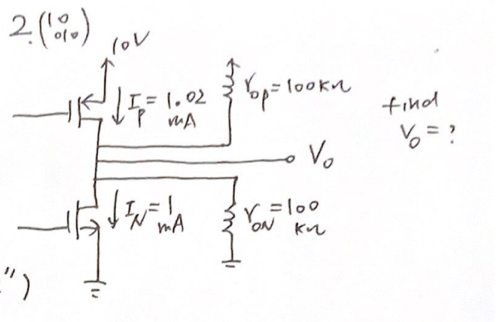 2. (10%)
10V
I_P = 1.02 mA
r_op = 100KΩ
find
V_o = ?
V_o
I_N = 1 mA
r_oN = 100 KΩ
")